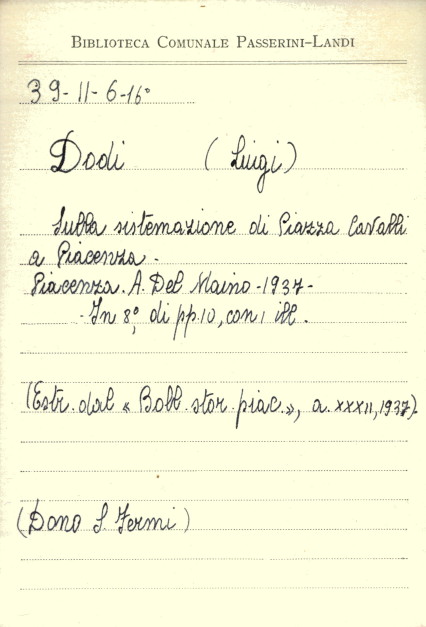 BIBLIOTECA COMUNALE PASSERINI-LANDI
39-11-6-16°
Dodi (Luigi)
Sulla sistemazione di Piazza Cavalli
a Piacenza.
Piacenza. A. Del Maino - 1937 -
- In 8°, di pp. 10, con 1 ill.
(Estr. dal « Boll. stor. piac. », a. XXXII, 1937).
(Dono S. Fermi)